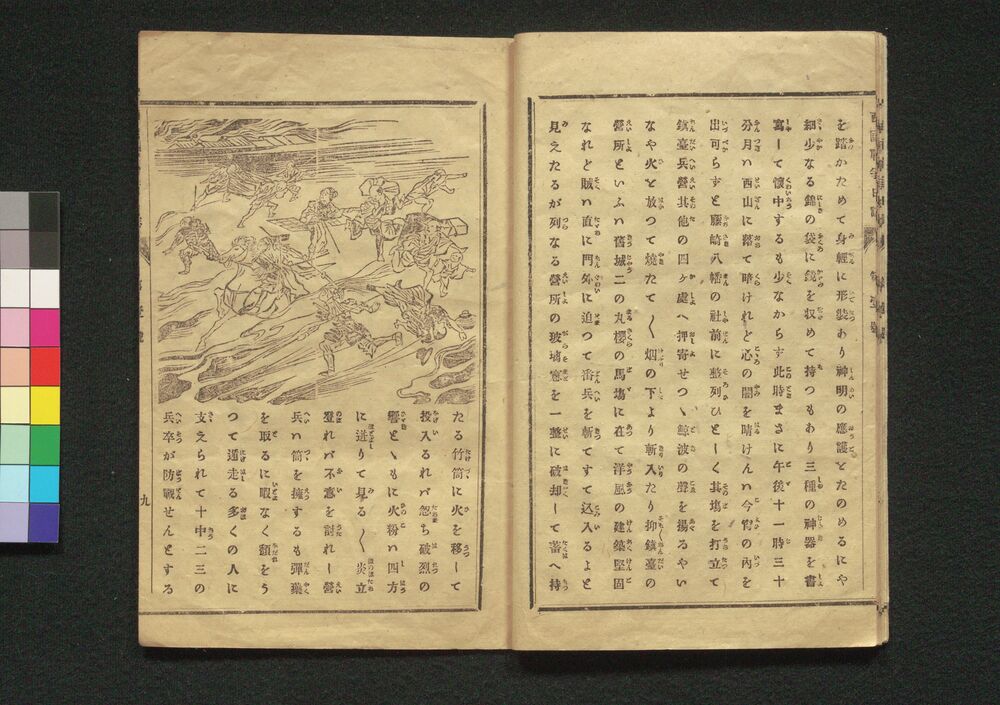 を踏かためて身輕に形裝あり神明の應護とたのめるにや
細少なる錦の袋に銭を収めて持つもあり三種の神器を書
寫して懷中するも少なからす此時まさに午後十一時三十
分月ハ西山に落て暗けれど心の闇を晴けんハ今宵の內を
出可らずと藤崎八幡の社前に整列ひとしく其塲を打立て
鎮臺兵營其他の四ヶ處へ押寄せつゝ鯨波の聲を揚るやい
なや火を放つて燒たて〱烟の下より斬入たり抑鎮臺の
營所といふハ舊城二の丸櫻の馬塲に在て洋風の建築堅固
なれど賊ハ直に門外に迫つて番兵を斬てすて込入るよと
見えたるが列なる營所の玻璃窓を一整に破却して蓄へ持
たる竹筒に火を移して
投入るれバ忽ち破烈の
響とゝもに火粉ハ四方
に迸りて見る〱炎立
登れバ不意を討れし營
兵ハ筒を擁するも彈藥
を取るに暇なく頽をう
つて逃走る多くの人に
支えられて十中二三の
兵卒が防戰せんとする
九